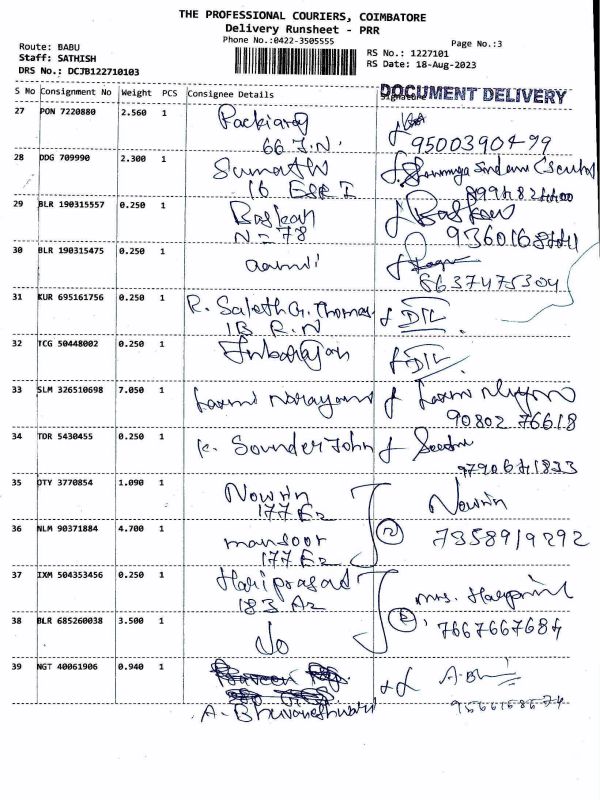 THE PROFESSIONAL COURIERS, COIMBATORE
Delivery Runsheet - PRR
Phone No.:0422-3505555
Page No.:3
Route: BABU
Staff: SATHISH
DRS No.: DCJB122710103
RS No.: 1227101
RS Date: 18-Aug-2023
S No Consignment No Weight PCS Consignee Details Signature
DOCUMENT DELIVERY
27 PON 7220880 2.560 1 Packiaraj
66 J.N. 9500390499
28 DDG 709990 2.300 1 Sumathi
16 ESR I
29 BLR 190315557 0.250 1 Baskean Baskean
N = 78
30 BLR 190315475 0.250 1
8637475304
31 KUR 695161756 0.250 1 R. Saleth G. Thomas DIL
1B R.N
32 TCG 50448002 0.250 1 Inbarajan DIL
33 SLM 326510698 7.050 1 Laxmi Narayana
90802 76618
34 TDR 5430455 0.250 1 K. Sounder John
35 OTY 3770854 1.090 1 Nowrin Nowrin
177 E2
36 NLM 90371884 4.700 1 mansoor 2 7358919292
177 E2
37 IXM 504353456 0.250 1 Hariprasad mrs.
183 A2
38 BLR 685260038 3.500 1 Jo 2 7667667684
39 NGT 40061906 0.940 1
A. Bhuvaneshwari